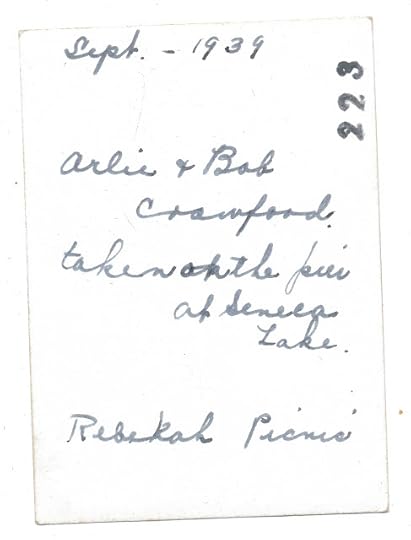 Sept. - 1939
223
Arlie & Bob
Crawford.
taken on the pier
at Seneca
Lake.
Rebekah Picnic